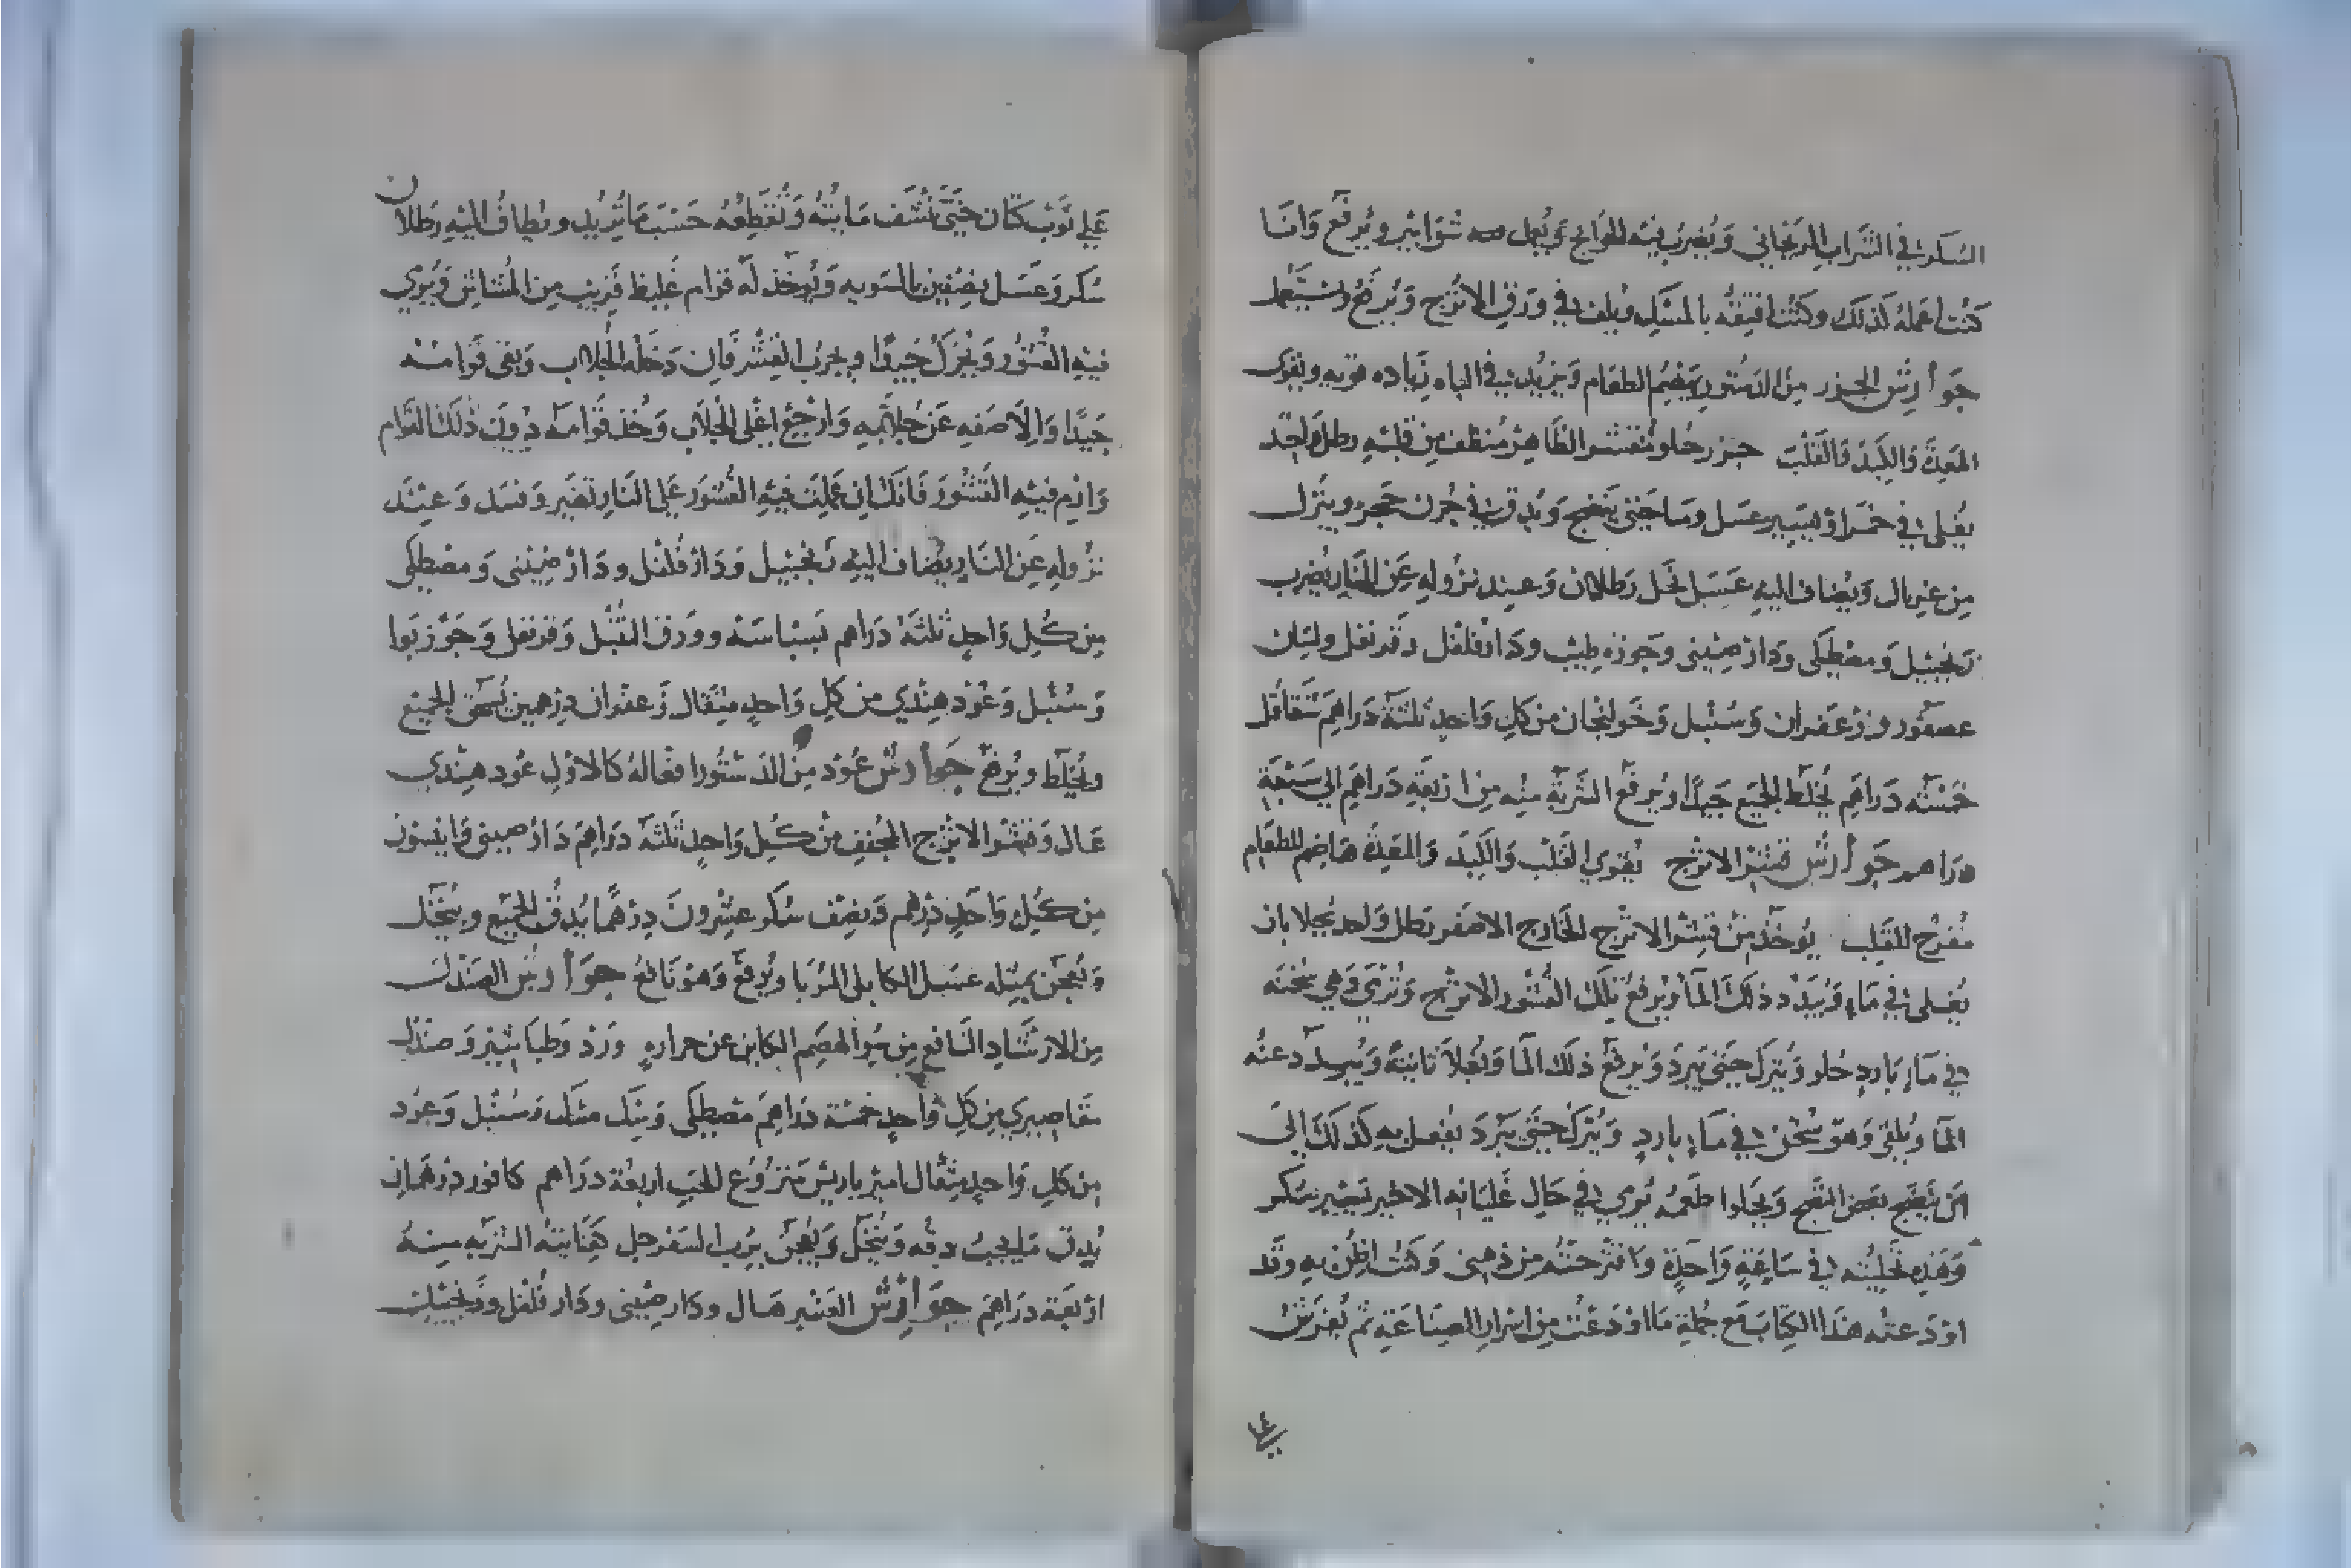 السكر في الشراب الريحاني ويضرب فيه للموايج ويعمل منه شوابير ويرفع وانا
كنت اعمله كذلك وكنت افتقه بالمسك ويلف في ورق الاترج ويرفع ويستعمل
جوارش الجزر من الدستور يهضم الطعام ويزيد في الباه زياده قويه ويقوى
المعدة والكبد والقلب جزر حلو مقشر الظاهر منظف من قلبه رطل واحد
يغلى في خمر او يسير عسل وما حتى ينضج ويدق في جرن حجر وينزل
من غربال ويضاف اليه عسل نحل رطلان وعند نزوله عن النار يضرب
زنجبيل ومصطكى ودار صينى وجوزه طيب ودار فلفل وقرنفل ولسان
عصفور وزعفران وسنبل وخولنجان من كل واحد ثلثة دراهم شقاقل
خمسه دراهم يخلط الجميع جيدا ويرفع الشربة منه من اربعة دراهم الي سبعة
دراهم جوارش قشر الاترج يقوي القلب والكبد والمعدة هاضم للطعام
مفرح للقلب يوخذ من قشر الاترج الخارج الاصفر رطل واحد بجلابان
يغلى في ماء ويبدد ذلك الما ويرفع تلك القشور الاترج وترمي وهي سخنه
في ماء بارد حلو ويترك حتى يبرد ويرفع ذلك الما ويغلا ثانية ويبدد عنه
الما ويلقى وهو سخن في ماء بارد ويترك حتى يبرد يفعل به كذلك الى
ان ينضج بعض النضج ويحلوا طعمه يرمي في حال غليانه الاخير يسير سكر
وهذه تحليته في ساعة واحدة واقترحته من ذهنى وكنت اظن به وقد
اودعته هذا الكتاب مع جملة ما اودعت من اسرار الصناعة ثم يفرش
على
علي ثوب كتان حتى تنشف مايته وتقطعه حسب ما تريد ويضاف اليه رطلان
سكر وعسل نصفين بالسويه ويوخذ له قوام غليظ قريب من المشاش ويرمي
فيه القشور ويحرك جيدا ويجرب القشر فان دخله الجلاب وبقى قوامه
جيدا والا صفه عن جلابه وارجع اغلى الجلاب وخذ قوامه دون ذلك القوام
وارم فيه القشور فانك ان عملت فيه القشور على النار تغير وفسد وعند
نزوله عن النار يضاف اليه زنجبيل ودار فلفل ودار صينى ومصطكى
من كل واحد ثلثة دراهم بسباسه وورق التنبل وقرنفل وجوزبوا
وسنبل وعود هندي من كل واحد مثقال زعفران درهمين يسحق الجميع
ويخلط ويرفع جوارش عود من الدستور افعاله كالاول عود هندي
هال وقشر الاترج المجفف من كل واحد ثلثه دراهم دار صينى وانيسون
من كل واحد درهم ونصف سكر عشرون درهما يدق الجميع وينخل
ويعجن بمثله عسل الكابلى المربا ويرفع وهو نافع جوارش الصندل
من الارشاد النافع من سو الهضم الكاين عن حراره ورد وطباشير وصندل
مقاصيري من كل واحد خمسة دراهم مصطكى وبنك مسك وسنبل وعود
من كل واحد مثقال امير باريس منزوع الحب اربعة دراهم كافور درهمان
يدق ما يجب دقه وينخل ويعجن برب السفرجل الشربه منه
اربعة دراهم جوارش العنبر هال ودار صينى ودار فلفل وزنجبيل